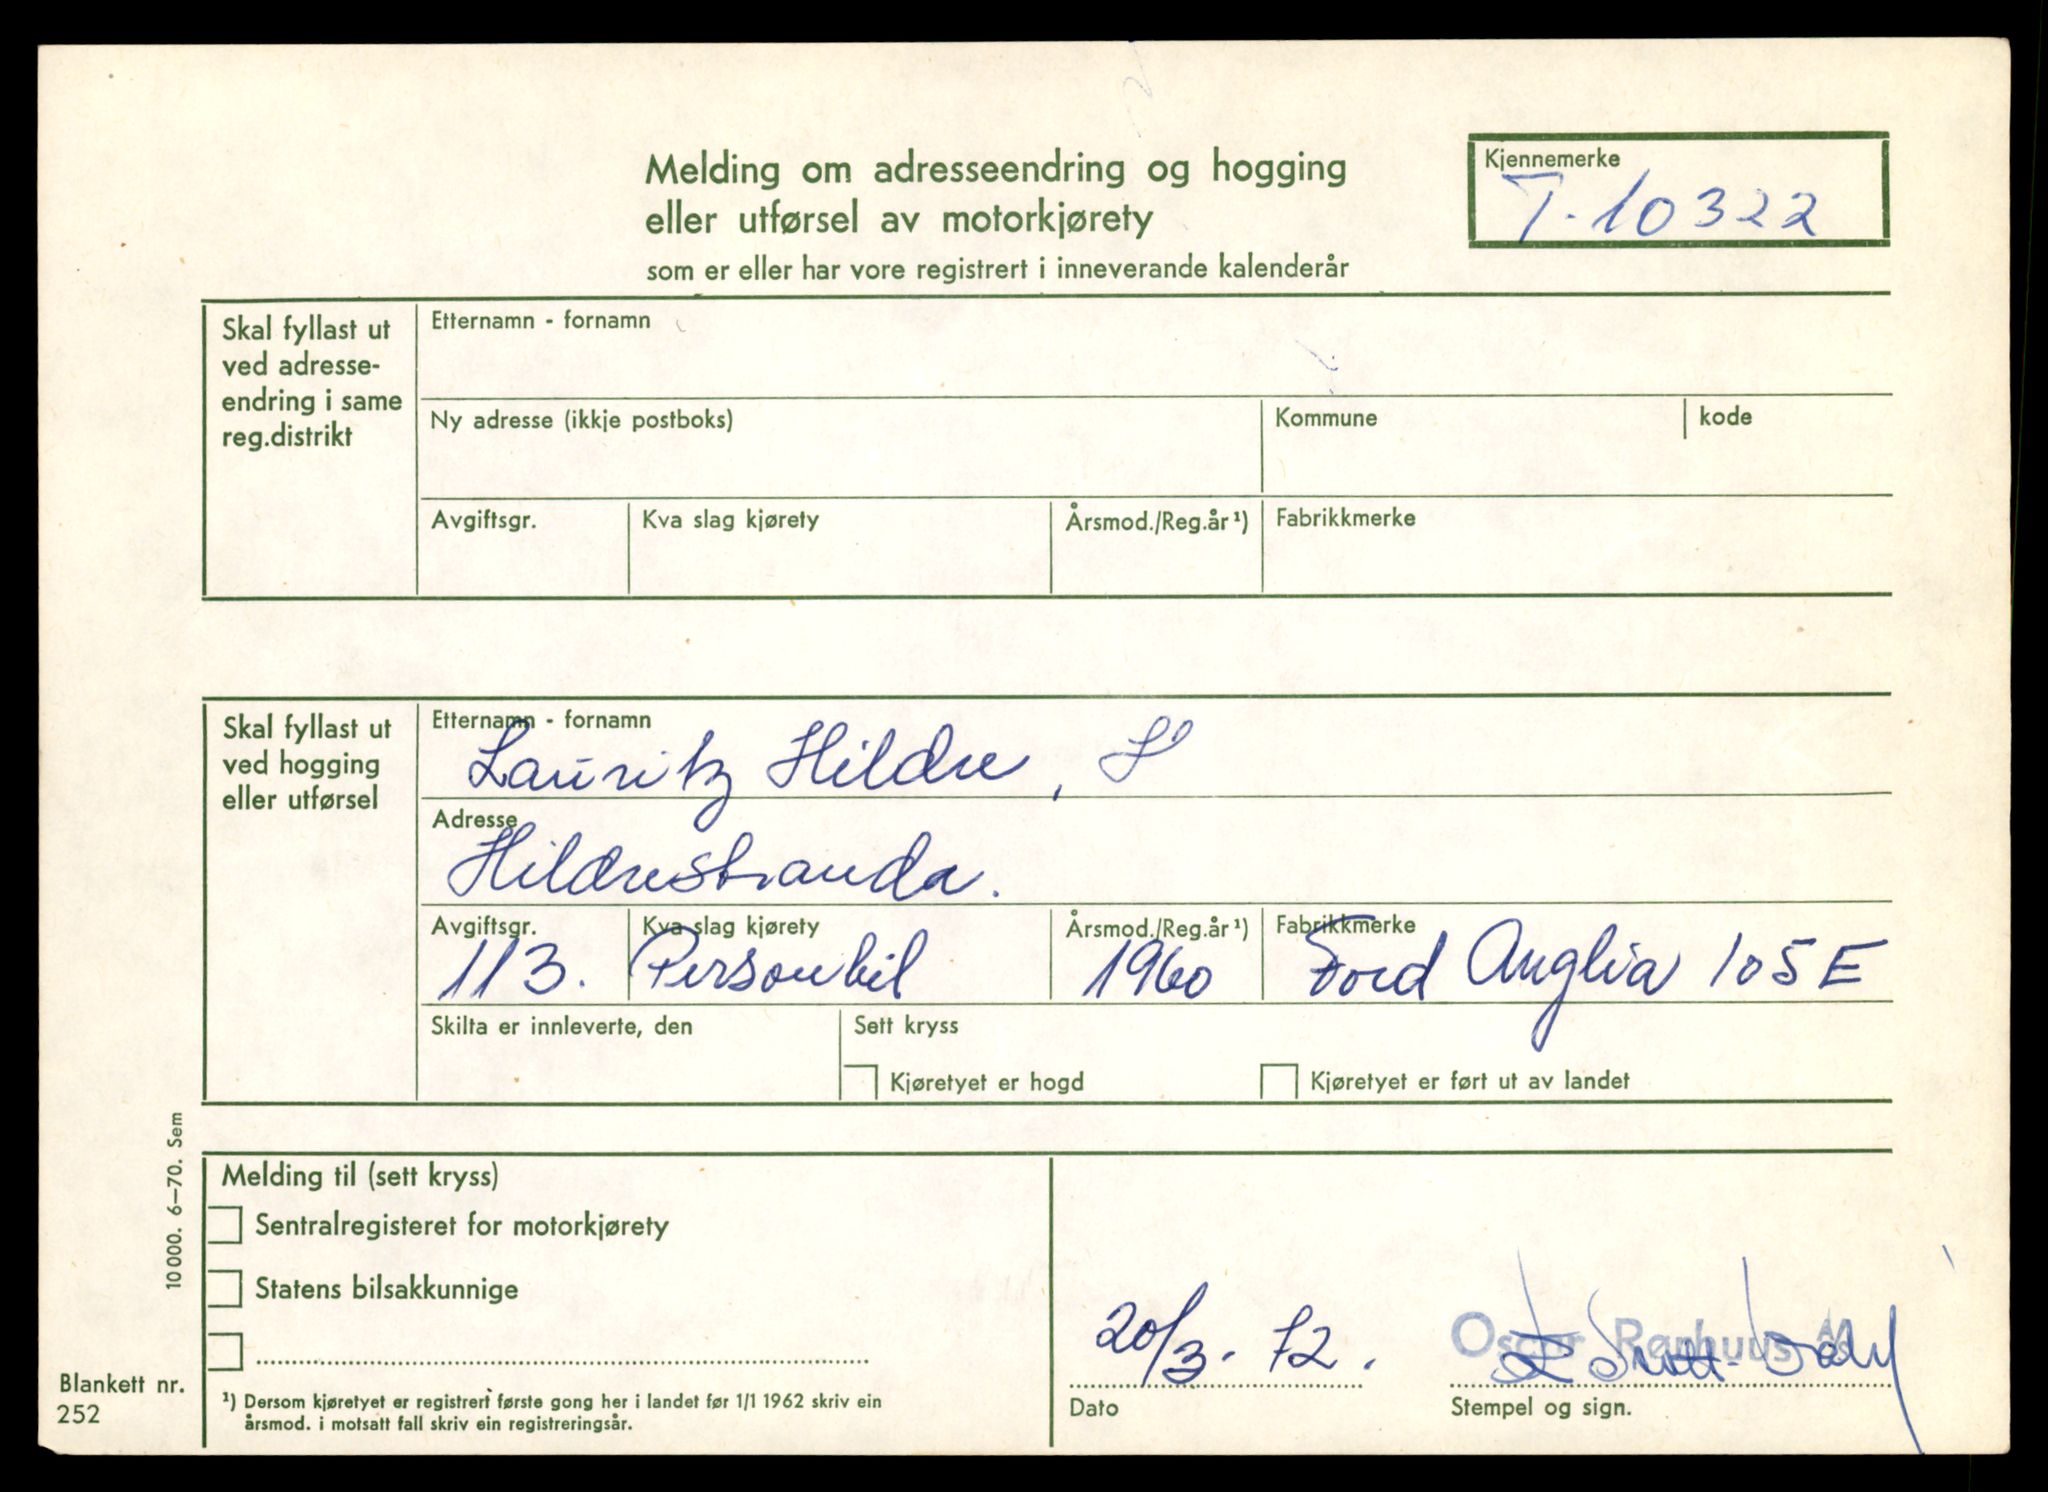 Melding om adresseendring og hogging
eller utførsel av motorkjørety
som er eller har vore registrert i inneverande kalenderår
Kjennemerke
T-10322
Skal fyllast ut
ved adresse-
endring i same
reg.distrikt
Etternamn - fornamn
Ny adresse (ikkje postboks)
Kommune
kode
Avgiftsgr.
Kva slag kjørety
Årsmod./Reg.år ¹)
Fabrikkmerke
Skal fyllast ut
ved hogging
eller utførsel
Etternamn - fornamn
Lauritz Hildre,
Adresse
Hildrestranda.
Avgiftsgr.
113.
Kva slag kjørety
Personbil
Årsmod./Reg.år ¹)
1960
Fabrikkmerke
Ford Anglia 105 E
Skilta er innleverte, den
Sett kryss
Kjøretyet er hogd
Kjøretyet er ført ut av landet
Melding til (sett kryss)
Sentralregisteret for motorkjørety
Statens bilsakkunnige
¹) Dersom kjøretyet er registrert første gong her i landet før 1/1 1962 skriv ein
årsmod. i motsatt fall skriv ein registreringsår.
20/3. 72.
Dato
Oscar Rønhuus
Stempel og sign.
10000. 6-70. Sem
Blankett nr.
252